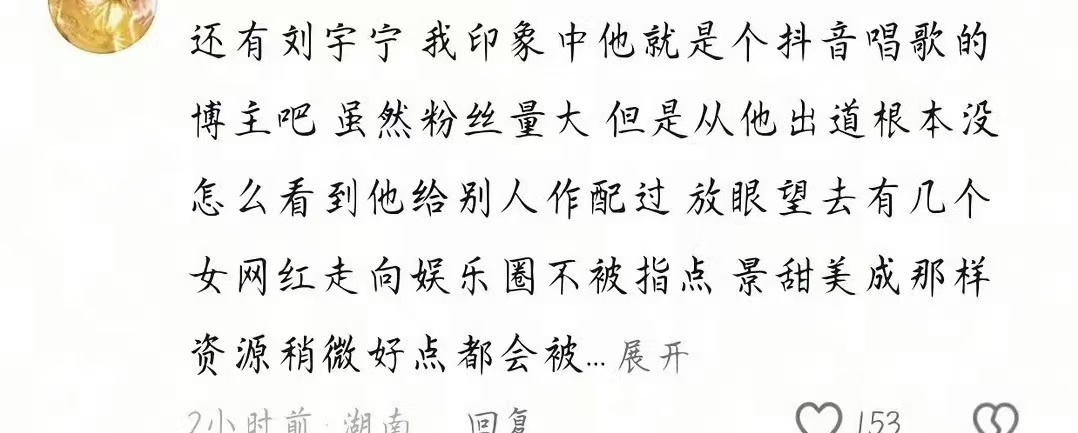 还有刘宇宁 我印象中他就是个抖音唱歌的
博主吧 虽然粉丝量大 但是从他出道根本没
怎么看到他给别人作配过 放眼望去有几个
女网红走向娱乐圈不被指点 景甜美成那样
资源稍微好点都会被... 展开
2小时前·湖南 回复 153